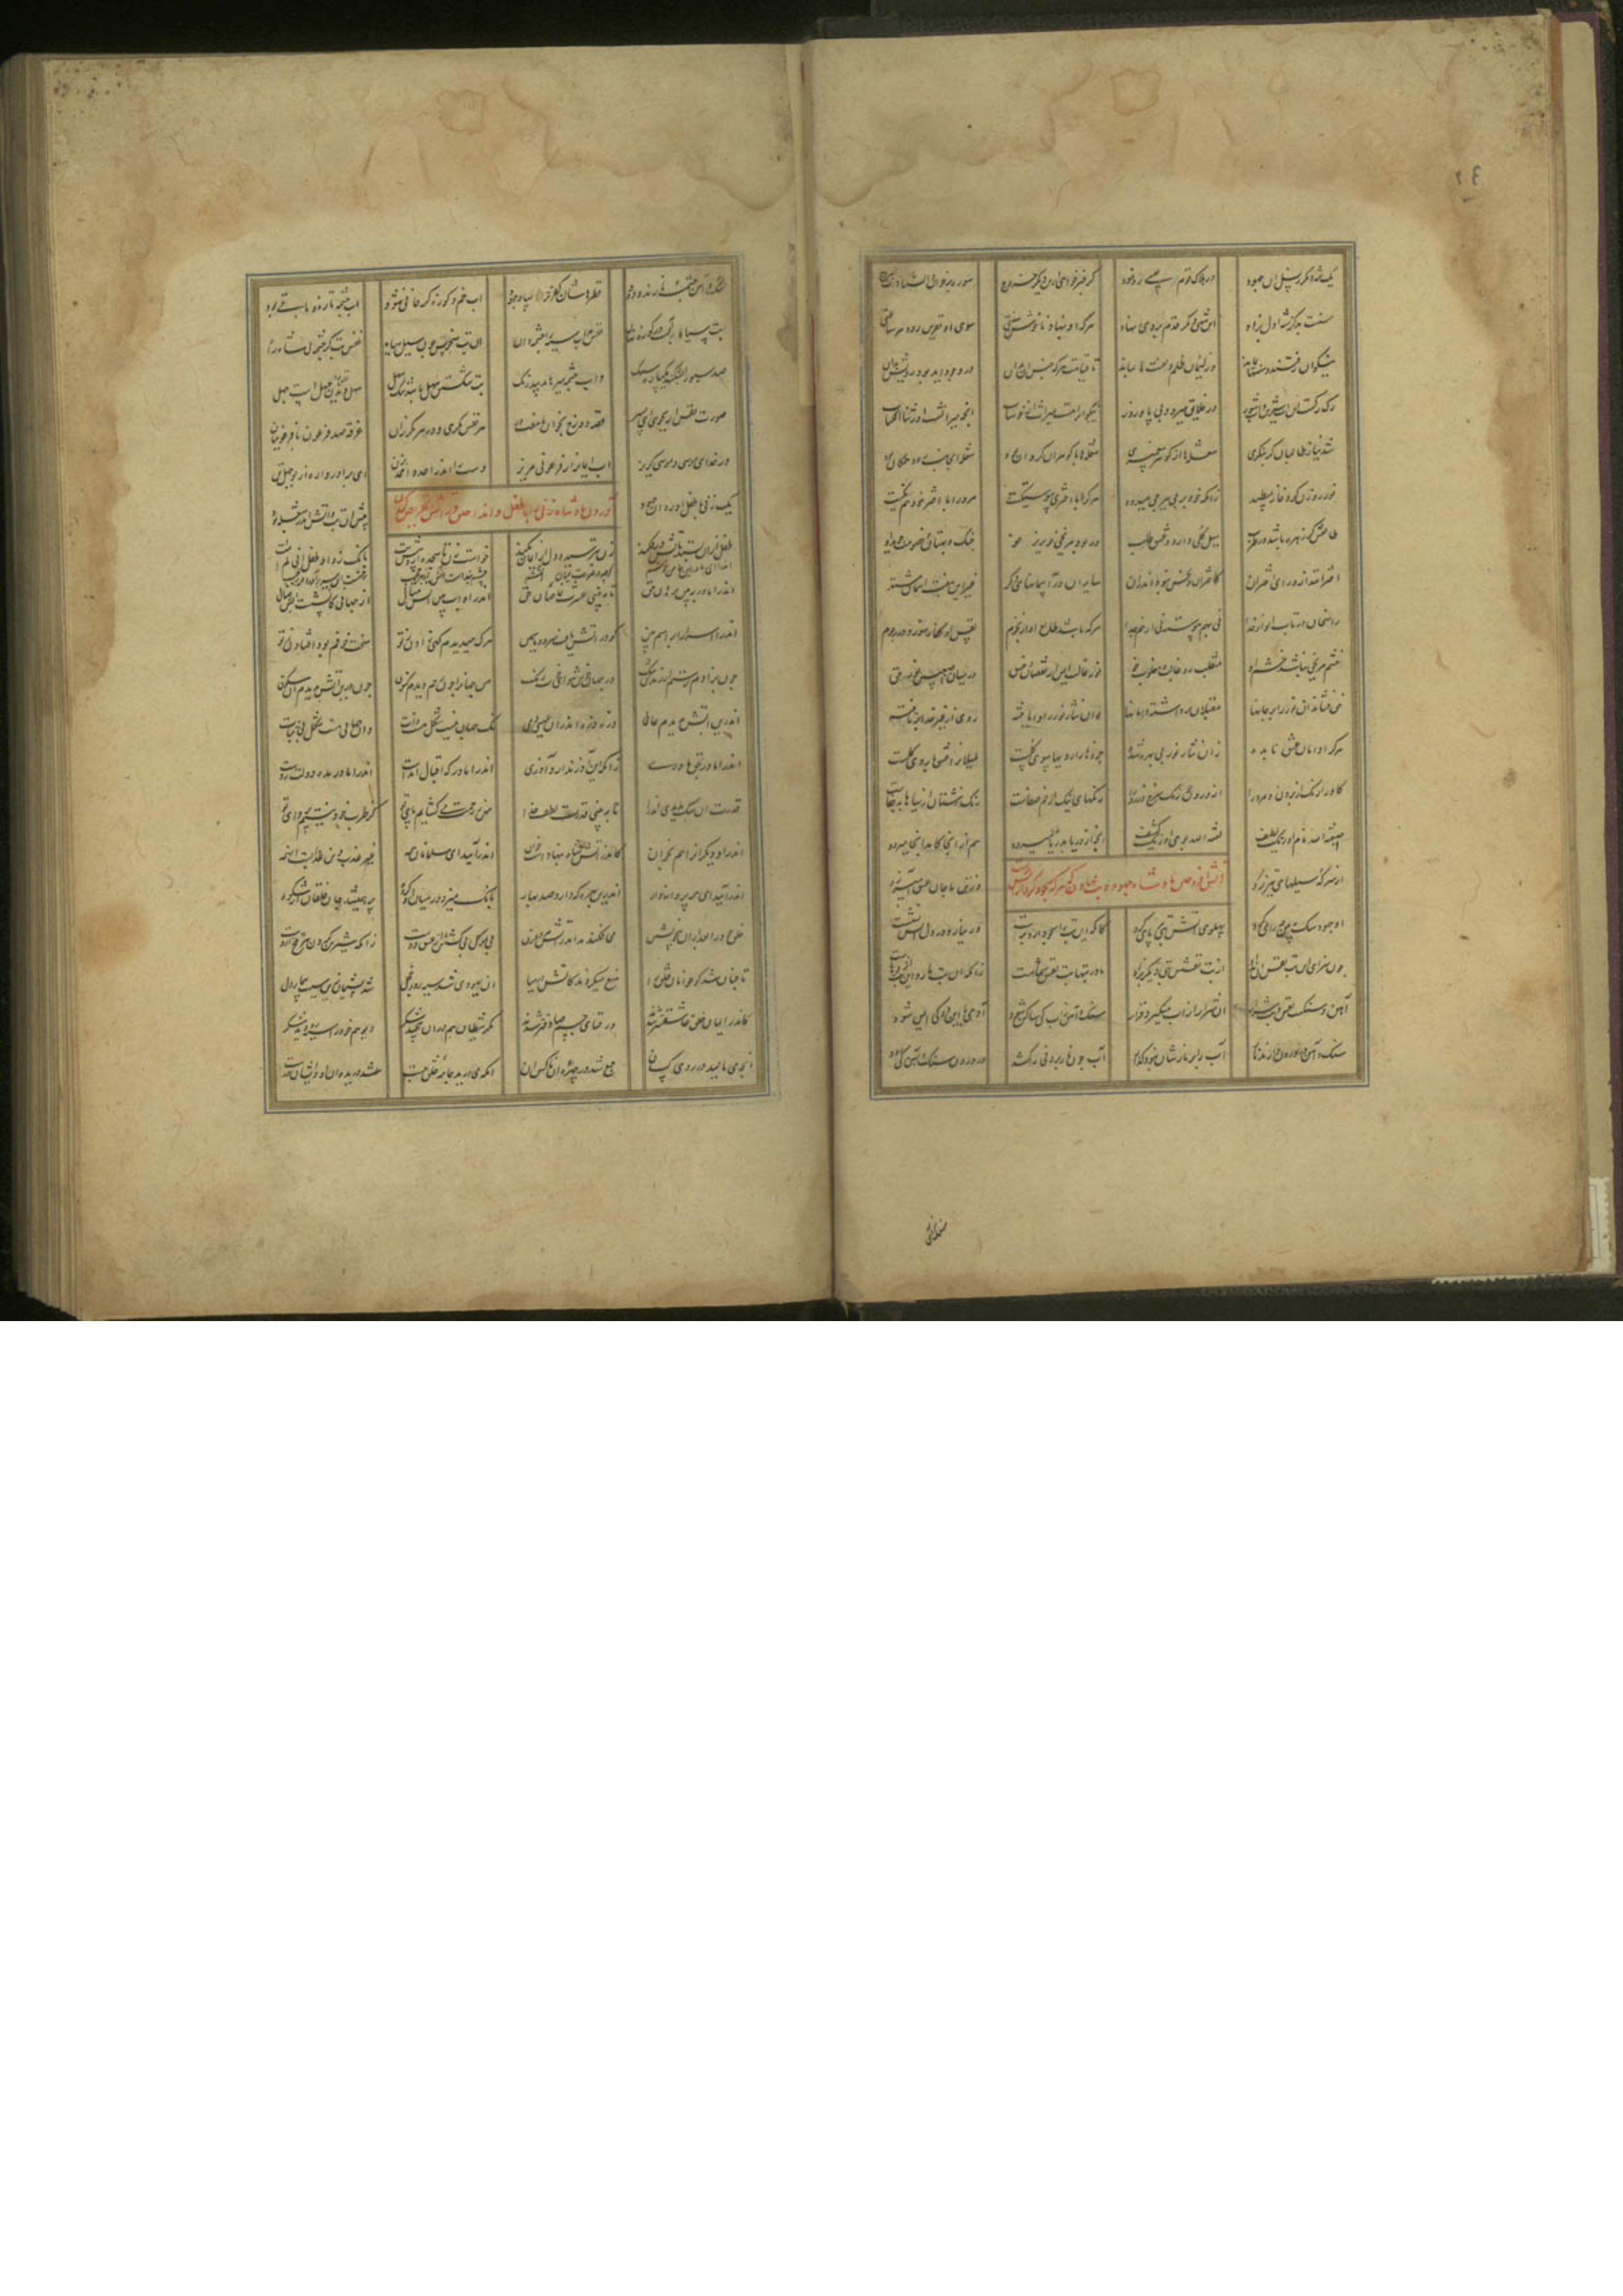 یک شه دیگر ز نسل آن جهود در هلاک قوم عیسی رو نمود گر خبر خواهی ازین دیگر خروج سوره بر خوان والسما ذات البروج
سنت بد کز شه اول بزاد این شه دیگر قدم بر وی نهاد هر که او بنهاد ناخوش سنتی سوی او نفرین رود هر ساعتی
نیکوان رفتند و سنتها بماند وز لئیمان ظلم و لعنت ها بماند تا قیامت هر که جنس آن بدان در وجود آید بود رویش بدان
رک رکست این آب شیرین و آب شور در خلایق میرود نیکوانرا هست میراث از خوشاب آنچه میراثست اورثنا الکتاب
شد نیاز طالبان ار بنگری شعلها از گوهر پیغمبری شعلها با گوهران گردان بود شعله آن جانب رود هم کان بود
نور روزن گرد خانه میدود زانکه خور برجی به برجی میرود هر کرا با اختری پیوستگیست مر ورا با اختر خود هم تکیست
طالعش گر زهره باشد در طرب میل کلی دارد و عشق و طلب ور بود مریخی خون ریز خو جنک و بهتان و خصومت جوید او
اخترانند از ورای اختران کاحتراق و نحس نبود اندران سایران در آسمانهای دکر غیر این هفت آسمان مشتهر
راسخان در تاب انوار خدا نی بهم پیوسته نی از هم جدا هر که باشد طالع او زان نجوم نفس او کفار سوزد در رجوم
خشم مریخی نباشد خشم او منقلب رو غالب و مغلوب خو نور غالب ایمن از نقصان و غسق در میان اصبعین نور حق
حق فشاند آن نور را بر جانها مقبلان برداشته دامانها وان نثار نور را او یافته روی از غیر خدا برتافته
هر که او دامان عشقی نابده زان نثار نور بی بهره شده جزوها را رویها سوی کلست بلبلانرا عشق با روی گلست
گاو را رنک از برون و مرد را از درون جو رنک سرخ و زرد را رنکهای نیک از خم صفاست رنک زشتان از سیاهابه جفاست
صبغة الله نام آن رنک لطیف لعنة الله بوی آن رنک کثیف آنچه از دریا بدریا میرود هم از آنجا کامد آنجا میرود
از سر که سیلهای تیز رو وز تن ما جان عشق آمیز رو
آتش افروختن پادشاه جهود و بت نهادن که هر که سجود کرد از آتش برست
آن جهود سک ببین چه رای کرد پهلوی آتش بتی بر پای کرد کانکه این بت را سجود آرد برست ور نیارد در دل آتش نشست
چون سزای این بت نفس او نداد از بت نفسش بتی دیگر بزاد مادر بتها بت نفس شماست زانکه آن بت مار و این بت اژدهاست
آهن و سنکست نفس و بت شرار آن شرار از آب میگیرد قرار سنک و آهن ز آب کی ساکن شود آدمی با این دو کی ایمن شود
سنک و آهن در درون دارند نار آب را بر نارشان نبود گذار آب چون نار برونی را کشد در درون سنک و آهن کی رود
قطرهاشان کفر ترسا و جهود آب خم و کوزه گر فانی شود آب چشمه تازه و باقی بود
بت سیاه آبه است در کوزه نهان نفس مر آب سیه را چشمه دان آن بت منحوت چون سیل سیاه نفس بتگر چشمه ای بر شاه راه
صد سبو را بشکند یکپاره سنک و آب چشمه میزهاند بیدرنک بت شکستن سهل باشد نیک سهل سهل دیدن نفس را جهلست جهل
صورت نفس ار بجویی ای پسر قصه دوزخ بخوان با هفت در هر نفس مکری و در هر مکر زان غرقه صد فرعون با فرعونیان
در خدای موسی و موسی گریز آب ایمانرا ز فرعونی مریز دست را اندر احد و احمد بزن ای برادر واره از بوجهل تن
آوردن پادشاه زنی را با طفل و انداختن در آتش
یک زنی با طفل آورد آن جهود پیش آن بت و آتش اندر شعله بود
طفل ازو بستد در آتش در فکند زن بترسید و دل از ایمان بکند خواست زن تا سجده آرد پیش بت بانک زد آن طفل انی لم امت
اندرآ ای مادر اینجا من خوشم گرچه در صورت میان آتشم چشم بندست آتش از بهر حجیب رحمتست این سر برآورده ز جیب
اندرا مادر ببین برهان حق تا ببینی عشرت خاصان حق اندرا و آب بین آتش مثال از جهانی کاتشست آبش مثال
اندرا اسرار ابراهیم بین کو در آتش یافت سرو و یاسمین مرک میدیدم گه زادن ز تو سخت خوفم بود افتادن ز تو
چون بزادم رستم از زندان تنک در جهانی خوش هوای خوب رنک من جهانرا چون رحم دیدم کنون چون درین آتش بدیدم این سکون
اندرین آتش بدیدم عالمی ذره ذره اندرو عیسی دمی نک جهان نیست شکل هست ذات وان جهان هست شکل بی ثبات
اندرا مادر بحق مادری زانکه این آذر ندارد آذری اندرا مادر که اقبال آمدست اندرا مادر مده دولت ز دست
قدرت آن سک بدیدی اندرا تا ببینی قدرت و لطف خدا من ز رحمت میکشایم پای تو کز طرب خود نیستم پروای تو
اندرا و دیکرانرا هم بخوان کاندر آتش شاه بنهادست خوان اندر آیید ای مسلمانان همه غیر عذب دین عذابست این همه
اندر آیید ای همه پروانه وار اندرین بهره که دارد صد بهار بانک میزد در میان آن گروه پر همیشد جان خلقان از شکوه
خلق خود را بعد از آن بیخویشتن می فکندند اندر آتش مرد و زن بی موکل بی کشش از عشق دوست زانکه شیرین کردن هر تلخ ازوست
تا چنان شد کان عوانان خلق را منع میکردند کاتش در میا آن یهودی شد سیه رو و خجل شد پشیمان زین سبب بیمار دل
کاندر ایمان خلق عاشقتر شدند در فنای جسم صادقتر شدند مکر شیطان هم درو پیچید شکر دیو هم خود را سیه رو دید شکر
آنچه می مالید در روی کسان جمع شد در چهره آن ناکس آن آنکه می درید جامه خلق چست شد دریده آن او ایشان درست